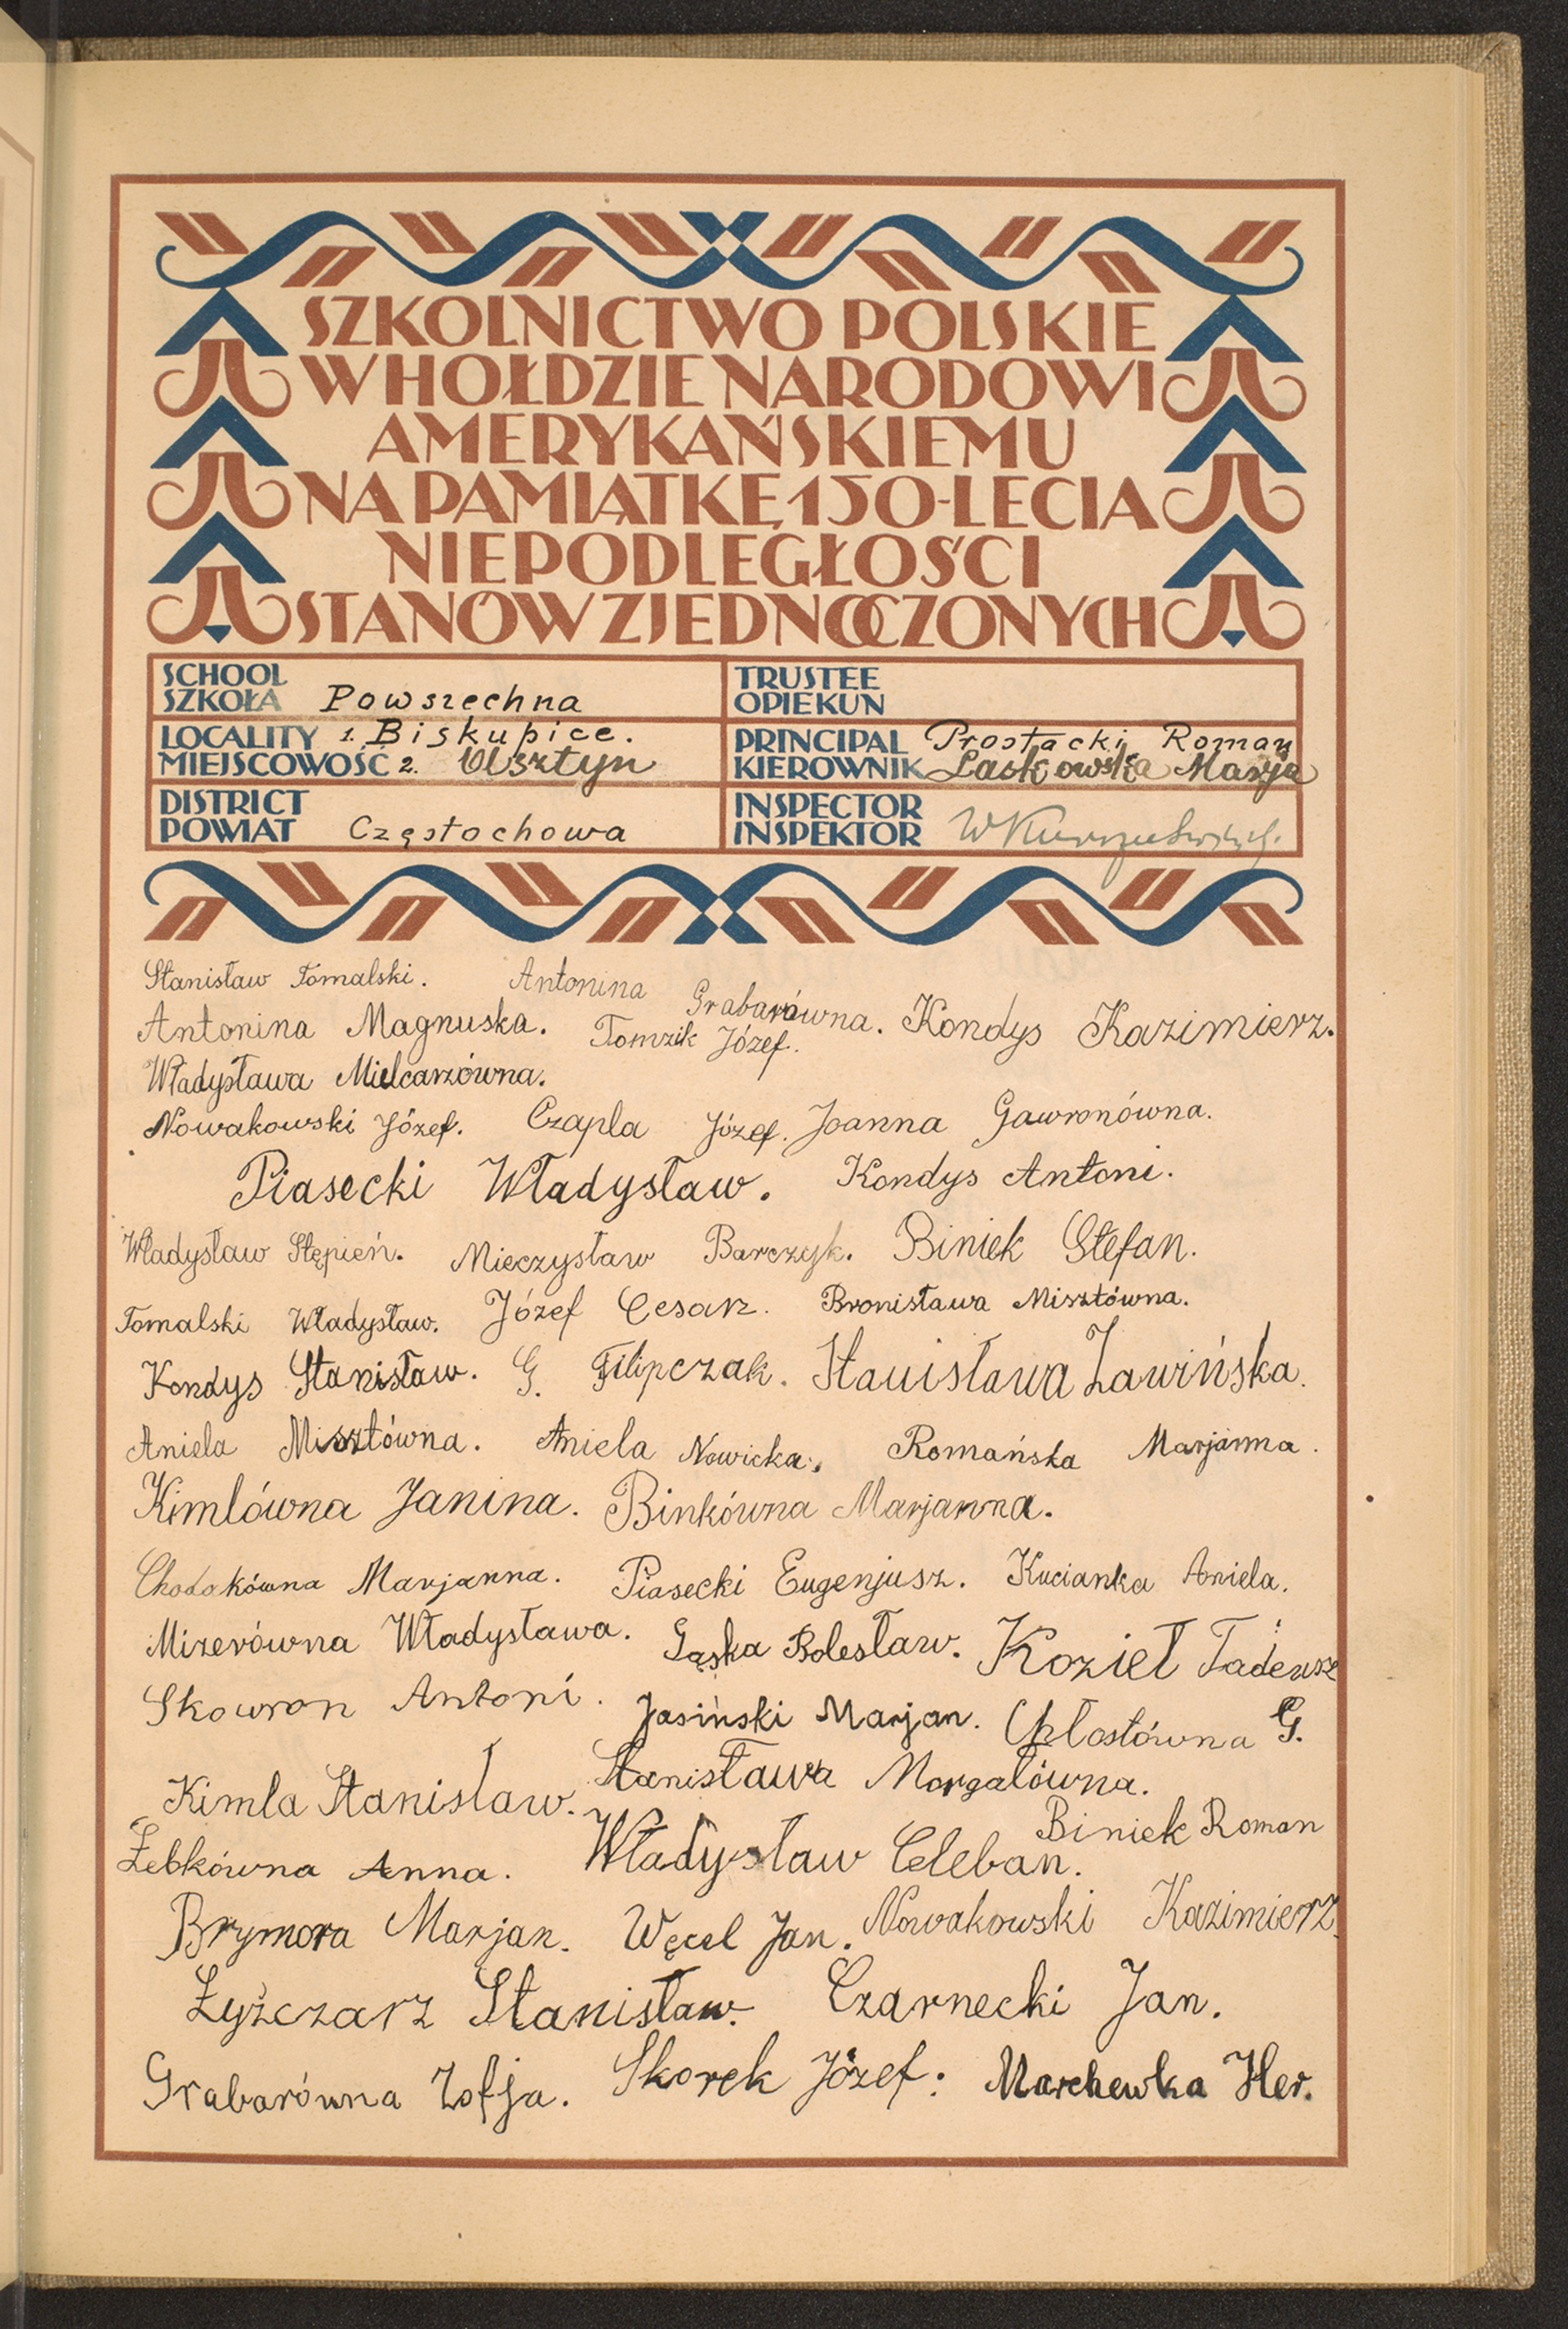 SZKOLNICTWO POLSKIE
W HOŁDZIE NARODOWI
AMERYKAŃSKIEMU
NA PAMIĄTKĘ 150-LECIA
NIEPODLEGŁOŚCI
STANÓW ZJEDNOCZONYCH
SCHOOL
SZKOŁA Powszechna
TRUSTEE
OPIEKUN
LOCALITY 1. Biskupice.
MIEJSCOWOŚĆ 2. Olsztyn
PRINCIPAL Prostacki Roman
KIEROWNIK Laskowska Marja
DISTRICT
POWIAT Częstochowa
INSPECTOR
INSPEKTOR
Stanisław Tomalski. Antonina Grabarówna.
Antonina Magnuska. Tomzik Józef. Kondys Kazimierz.
Władysława Mielcarzówna.
Nowakowski Józef. Czapla Józef. Joanna Gawronówna.
Piasecki Władysław. Kondys Antoni.
Władysław Stępień. Mieczysław Barczyk. Biniek Stefan.
Tomalski Władysław. Józef Cesarz. Bronisława Misztówna.
Kondys Stanisław. G. Filipczak. Stanisława Zawińska.
Aniela Misztówna. Aniela Nowicka. Romańska Marjanna.
Kimlówna Janina. Binkówna Marjanna.
Marjanna. Piasecki Eugenjusz. Kucianka Aniela.
Mizerówna Władysława. Gąska Bolesław. Kozieł Tadeusz
Skowron Antoni. Jasiński Marjan. Chłostówna G.
Kimla Stanisław. Stanisława Morgalówna.
Żebkówna Anna. Władysław Celeban. Biniek Roman
Brymora Marjan. Węcel Jan. Nowakowski Kazimierz.
Łyżczarz Stanisław. Czarnecki Jan.
Grabarówna Zofja. Skorek Józef. Marchewka Her.